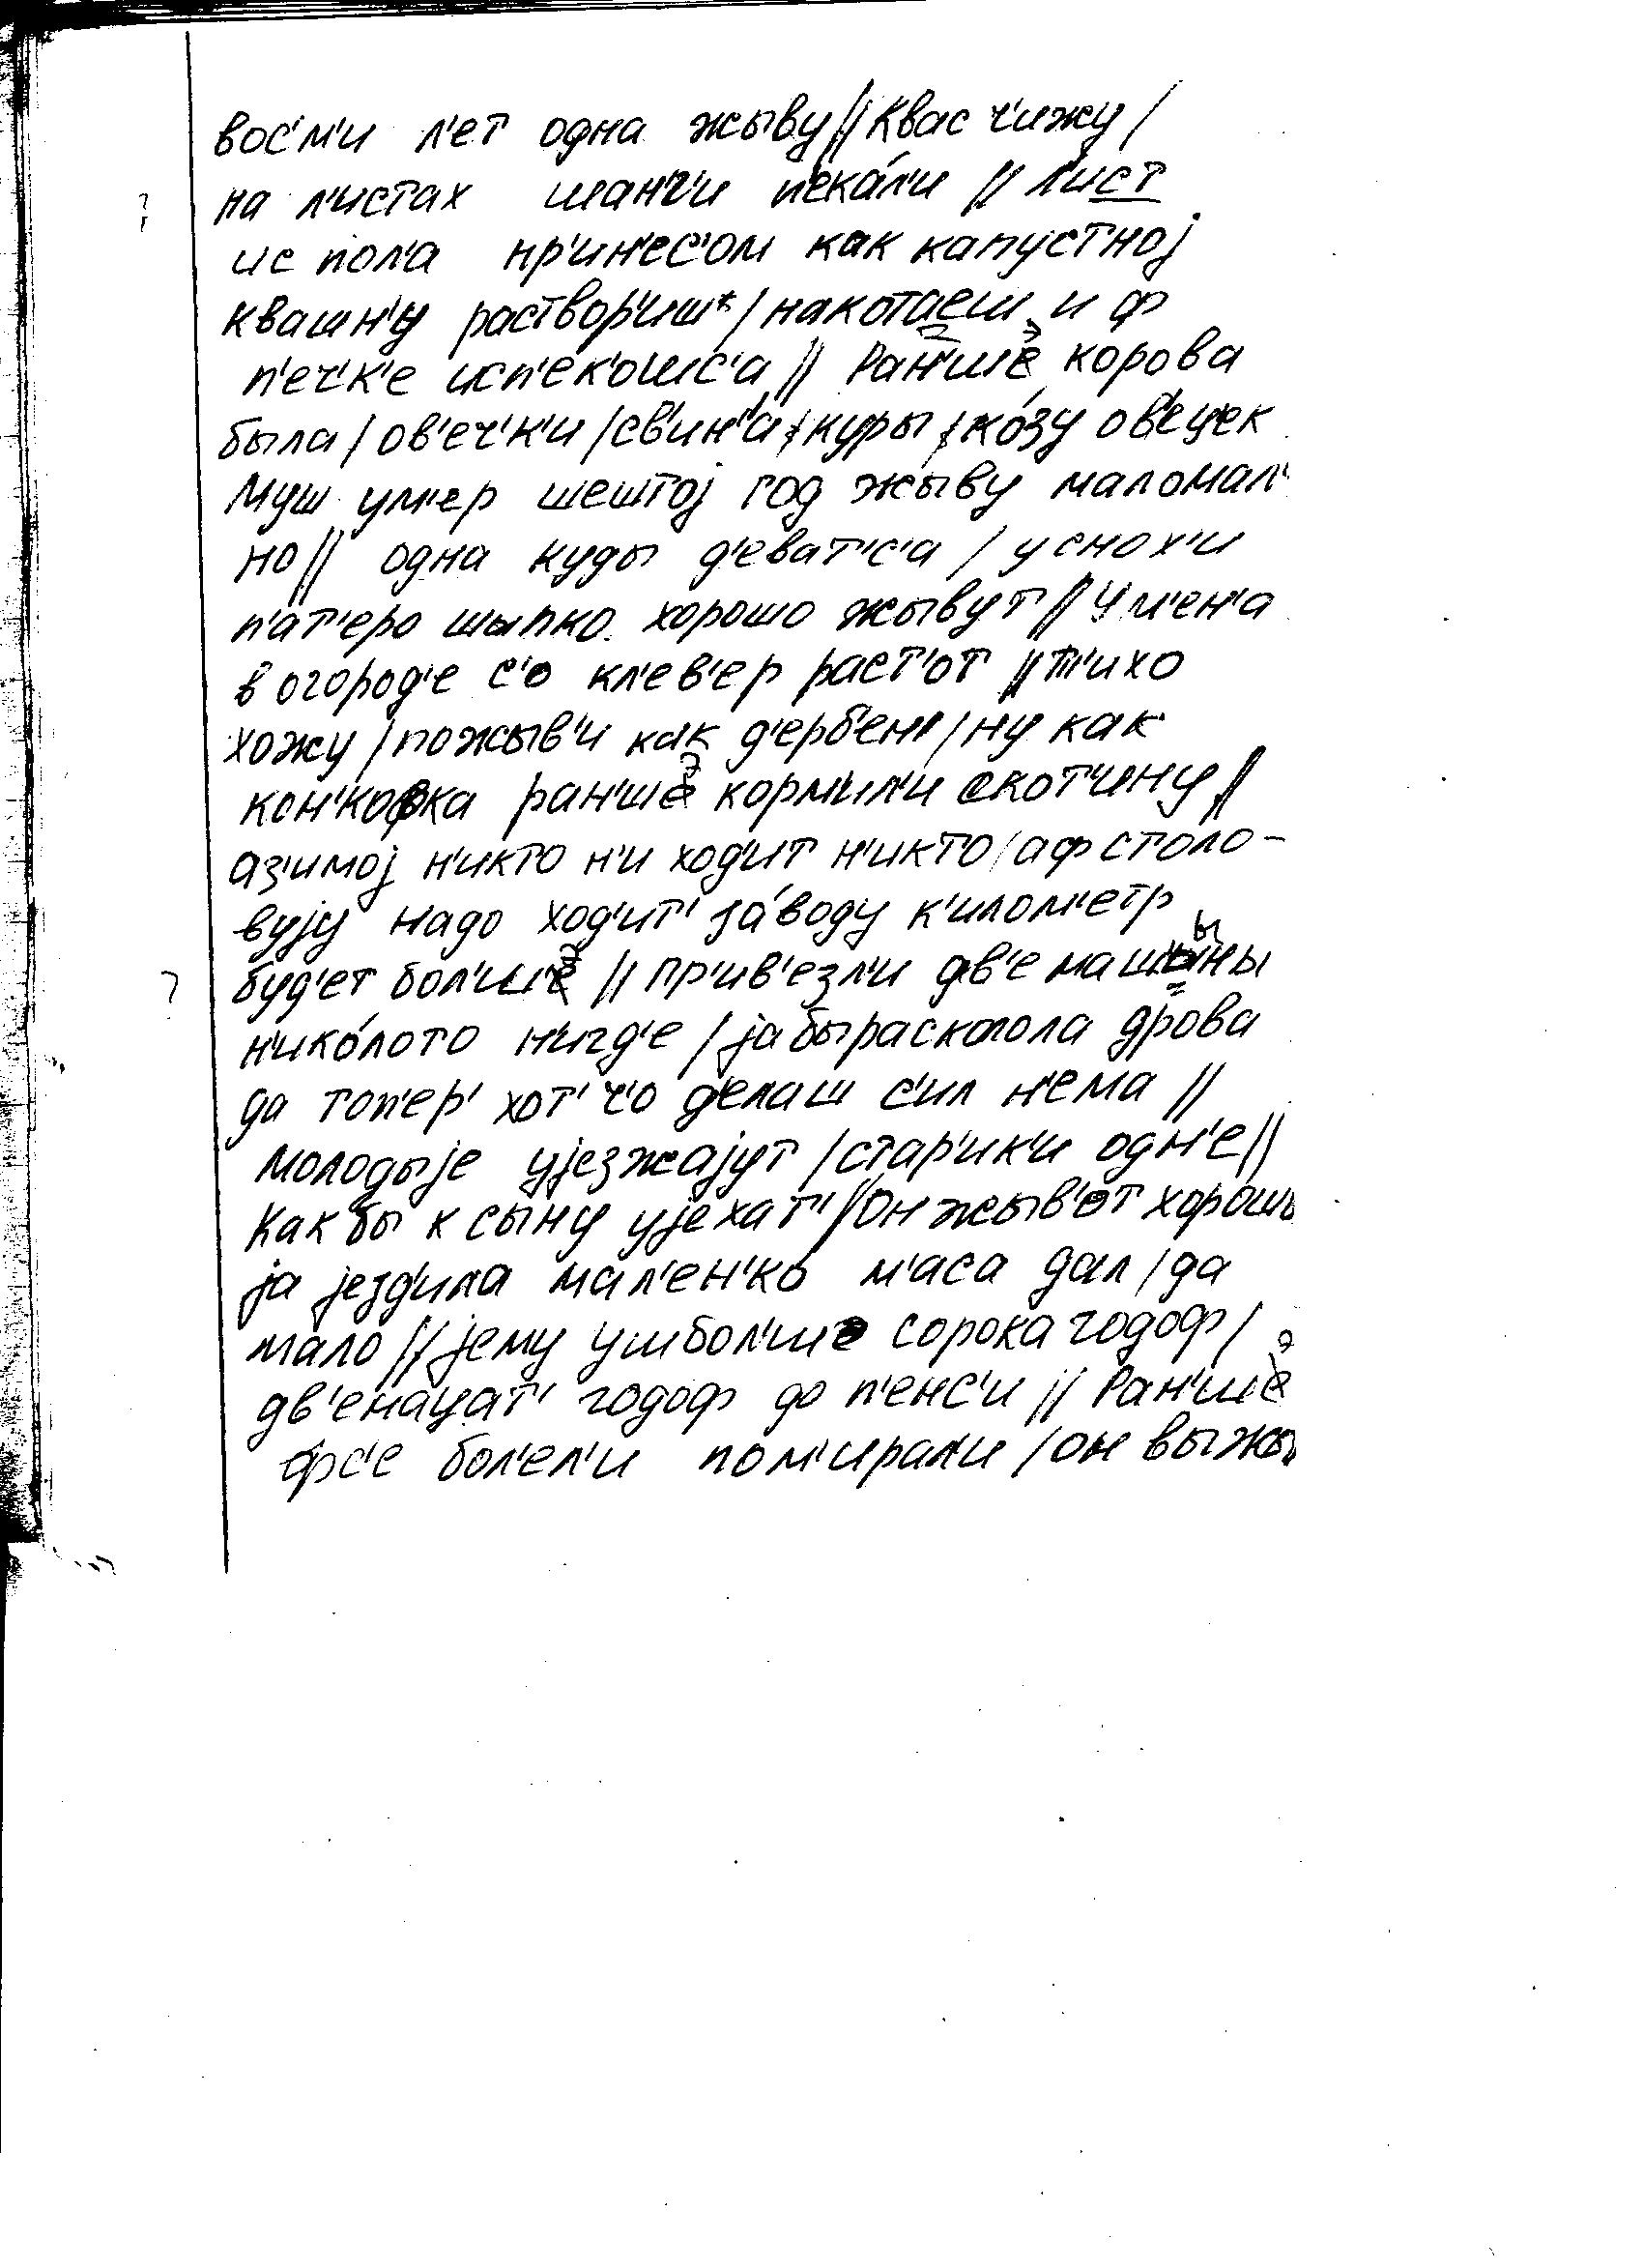 вос'м'и л'ет одна жыву // Квас ч'ижу /
на л'истах шан'г'и п'ека́л'и // Лист
ис пол'а пр'ин'ес'ом как капустној
квашн'у раствор'иш* / накотаеш и ф
п'еч'к'е исп'ек'ошс'а // Ран'шэ корова
была / ов'еч'к'и / св'ин'а / куры / ко́зу ов'ецек
Муш ум'ер шештој год жыву маломал'
но // одна куды д'еват'с'а / у снох'и
п'ат'еро шыпко хорошо жывут // У м'ен'а
в огород'е с'о кл'ев'ер раст'от // т'ихо
хожу / пожыв'и как д'ерб'ен' / ну как
кон'ко ран'шэ корм'ил'и скот'ину //
аз'имој н'икто н'и ход'ит н'икто / аф столо-
вују надо ход'ит' за́воду к'илом'етр
буд'ет бол'шэ // Пр'ив'езл'и дв'е машыны
н'ико́лото н'игд'е / ја бы расколола дрова
да топ'ер' хот' ч'о д'елаш с'ил н'ема //
Молодыје ујезжајут / стар'ик'и одн'е //
Как бы к сыну ујехат' // Он жыв'от хорошо
ја језд'ила мал'ен'ко м'аса дал / да
мало // јему уш бол'ше сорока годоф /
дв'енацат' годоф до п'енс'и // Ран'шэ
фс'е бол'ел'и пом'ирал'и / он выжы